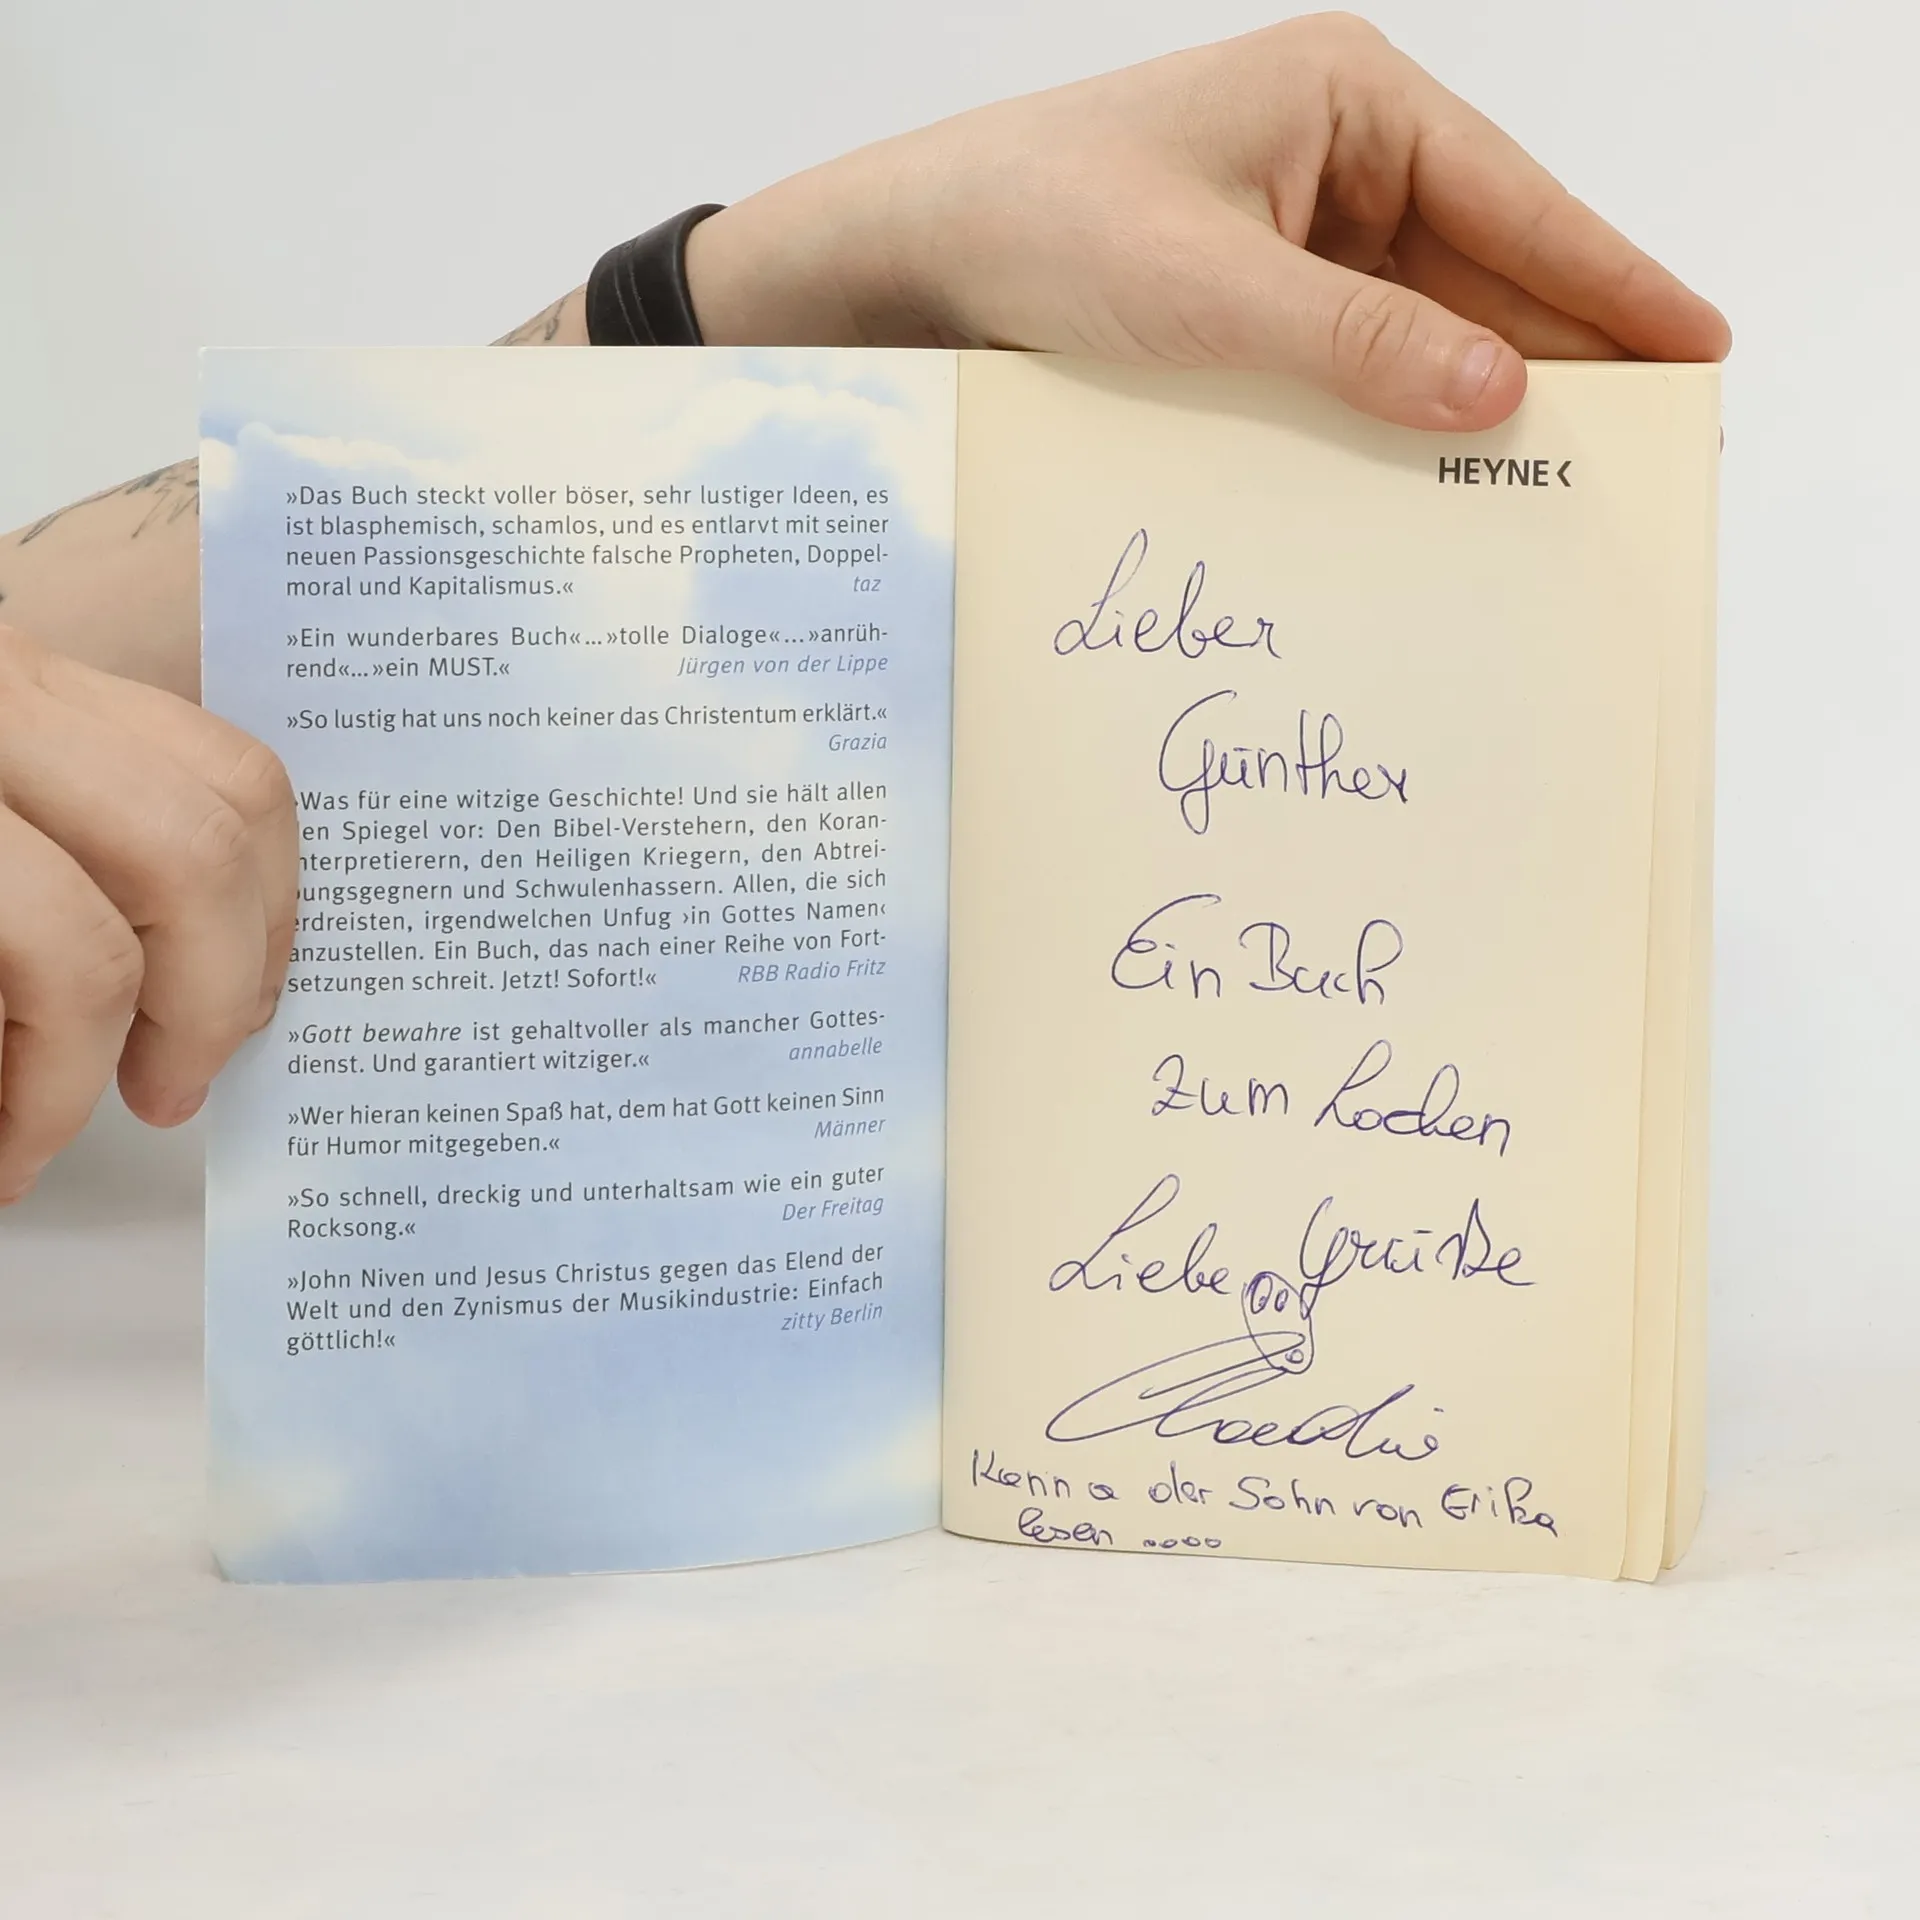 »Das Buch steckt voller böser, sehr lustiger Ideen, es
ist blasphemisch, schamlos, und es entlarvt mit seiner
neuen Passionsgeschichte falsche Propheten, Doppel-
moral und Kapitalismus.« taz
»Ein wunderbares Buch«...»tolle Dialoge«...»anrüh-
rend«...»ein MUST.« Jürgen von der Lippe
»So lustig hat uns noch keiner das Christentum erklärt.«
Grazia
Was für eine witzige Geschichte! Und sie hält allen
en Spiegel vor: Den Bibel-Verstehern, den Koran-
nterpretierern, den Heiligen Kriegern, den Abtrei-
ungsgegnern und Schwulenhassern. Allen, die sich
rdreisten, irgendwelchen Unfug ›in Gottes Namen‹
anzustellen. Ein Buch, das nach einer Reihe von Fort-
setzungen schreit. Jetzt! Sofort!« RBB Radio Fritz
»Gott bewahre ist gehaltvoller als mancher Gottes-
dienst. Und garantiert witziger.« annabelle
»Wer hieran keinen Spaß hat, dem hat Gott keinen Sinn
für Humor mitgegeben.« Männer
»So schnell, dreckig und unterhaltsam wie ein guter
Rocksong.« Der Freitag
»John Niven und Jesus Christus gegen das Elend der
Welt und den Zynismus der Musikindustrie: Einfach
göttlich!« zitty Berlin
HEYNE<
Lieber
Günther
Ein Buch
zum Lachen
Liebe Grüße
Claudia
Kann a der Sohn von Erika
lesen ....